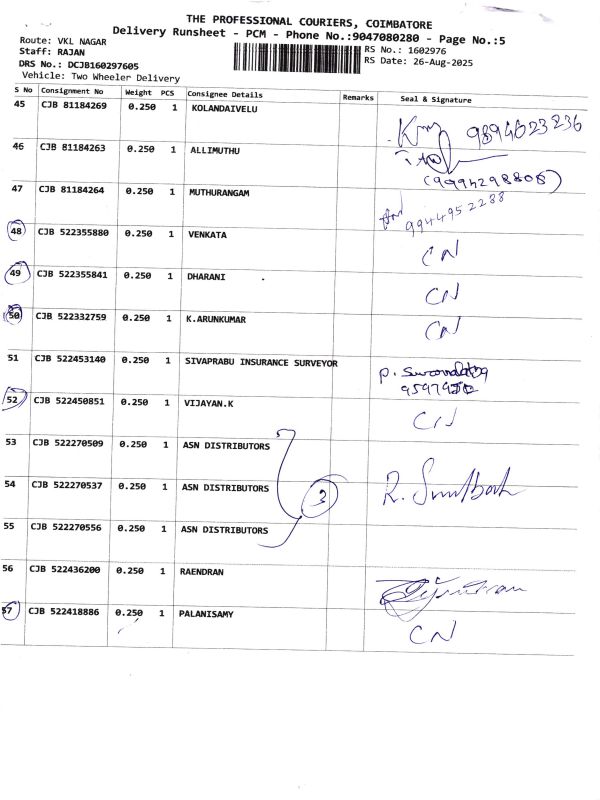 THE PROFESSIONAL COURIERS, COIMBATORE
Delivery Runsheet - PCM - Phone No.:9047080280 - Page No.:5
Route: VKL NAGAR
Staff: RAJAN
DRS No.: DCJB160297605
Vehicle: Two Wheeler Delivery
RS No.: 1602976
RS Date: 26-Aug-2025
S No Consignment No Weight PCS Consignee Details Remarks Seal & Signature
45 CJB 81184269 0.250 1 KOLANDAIVELU 9894623236
46 CJB 81184263 0.250 1 ALLIMUTHU (9994298808)
47 CJB 81184264 0.250 1 MUTHURANGAM 9944952238
48 CJB 522355880 0.250 1 VENKATA CN
49 CJB 522355841 0.250 1 DHARANI CN
50 CJB 522332759 0.250 1 K.ARUNKUMAR CN
51 CJB 522453140 0.250 1 SIVAPRABU INSURANCE SURVEYOR P.
52 CJB 522450851 0.250 1 VIJAYAN.K CN
53 CJB 522270509 0.250 1 ASN DISTRIBUTORS
54 CJB 522270537 0.250 1 ASN DISTRIBUTORS 3 R.
55 CJB 522270556 0.250 1 ASN DISTRIBUTORS
56 CJB 522436200 0.250 1 RAENDRAN
57 CJB 522418886 0.250 1 PALANISAMY CN